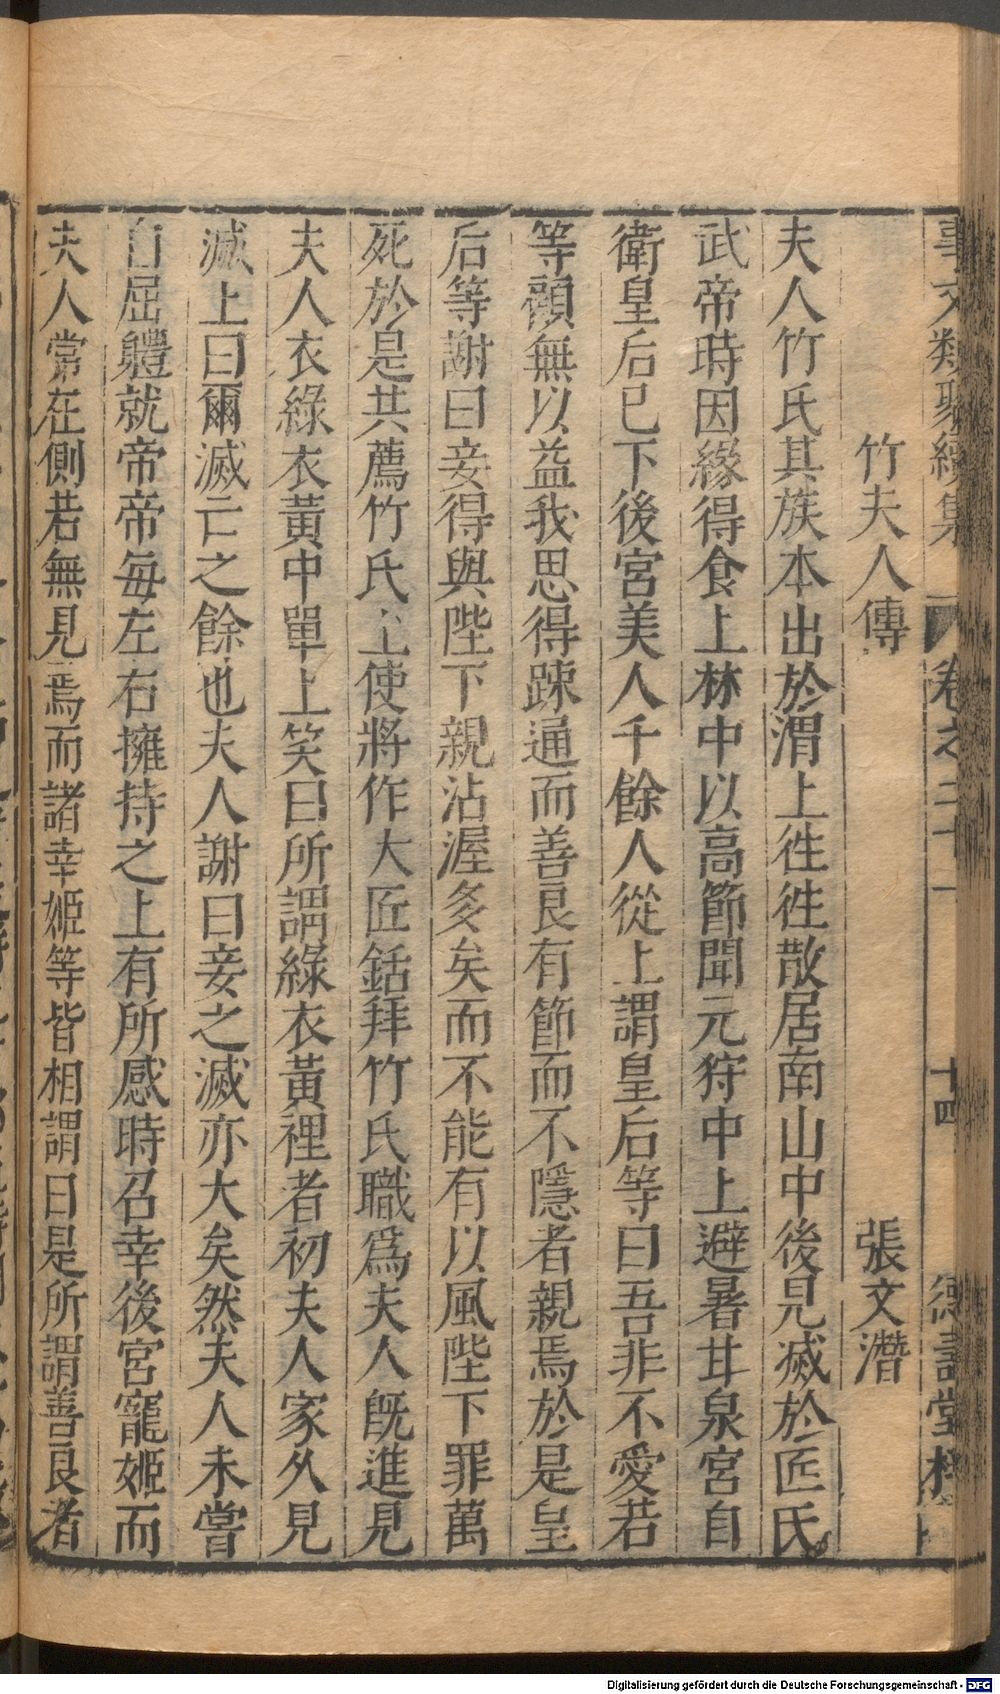 事文類聚續集 卷之二十一 十四 德壽堂梓
竹夫人傳 張文潛
夫人竹氏其族本出於渭上徃徃散居南山中後見滅於匠氏
武帝時因緣得食上林中以高節聞元狩中上避暑甘泉宮自
衛皇后已下後宮美人千餘人從上謂皇后等曰吾非不愛若
等顧無以益我思得踈通而善良有節而不隱者親焉於是皇
后等謝曰妾得與陛下親沾渥多矣而不能有以風陛下罪萬
死於是共薦竹氏上使將作大匠銛拜竹氏職爲夫人旣進見
夫人衣綠衣黃中單上笑曰所謂綠衣黃裡者初夫人家久見
滅上曰爾滅亡之餘也夫人謝曰妾之滅亦大矣然夫人未嘗
自屈軆就帝帝每左右擁持之上有所感時召幸後宮寵姬而
夫人常在側若無見焉而諸幸姬等皆相謂曰是所謂善良者
Digitalisierung gefördert durch die Deutsche Forschungsgemeinschaft - DFG